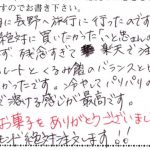 すのでお書き下さい。
月に長野へ旅行に行ったのです
絶対に買いたかった
ず、残念すぎて 楽天で注
レートとくるみ餡のバランスとし
かったです。冷やしてパリパリの
で溶ける感じが最高です。
お菓子をありがとうございまし
絶対注文します!!